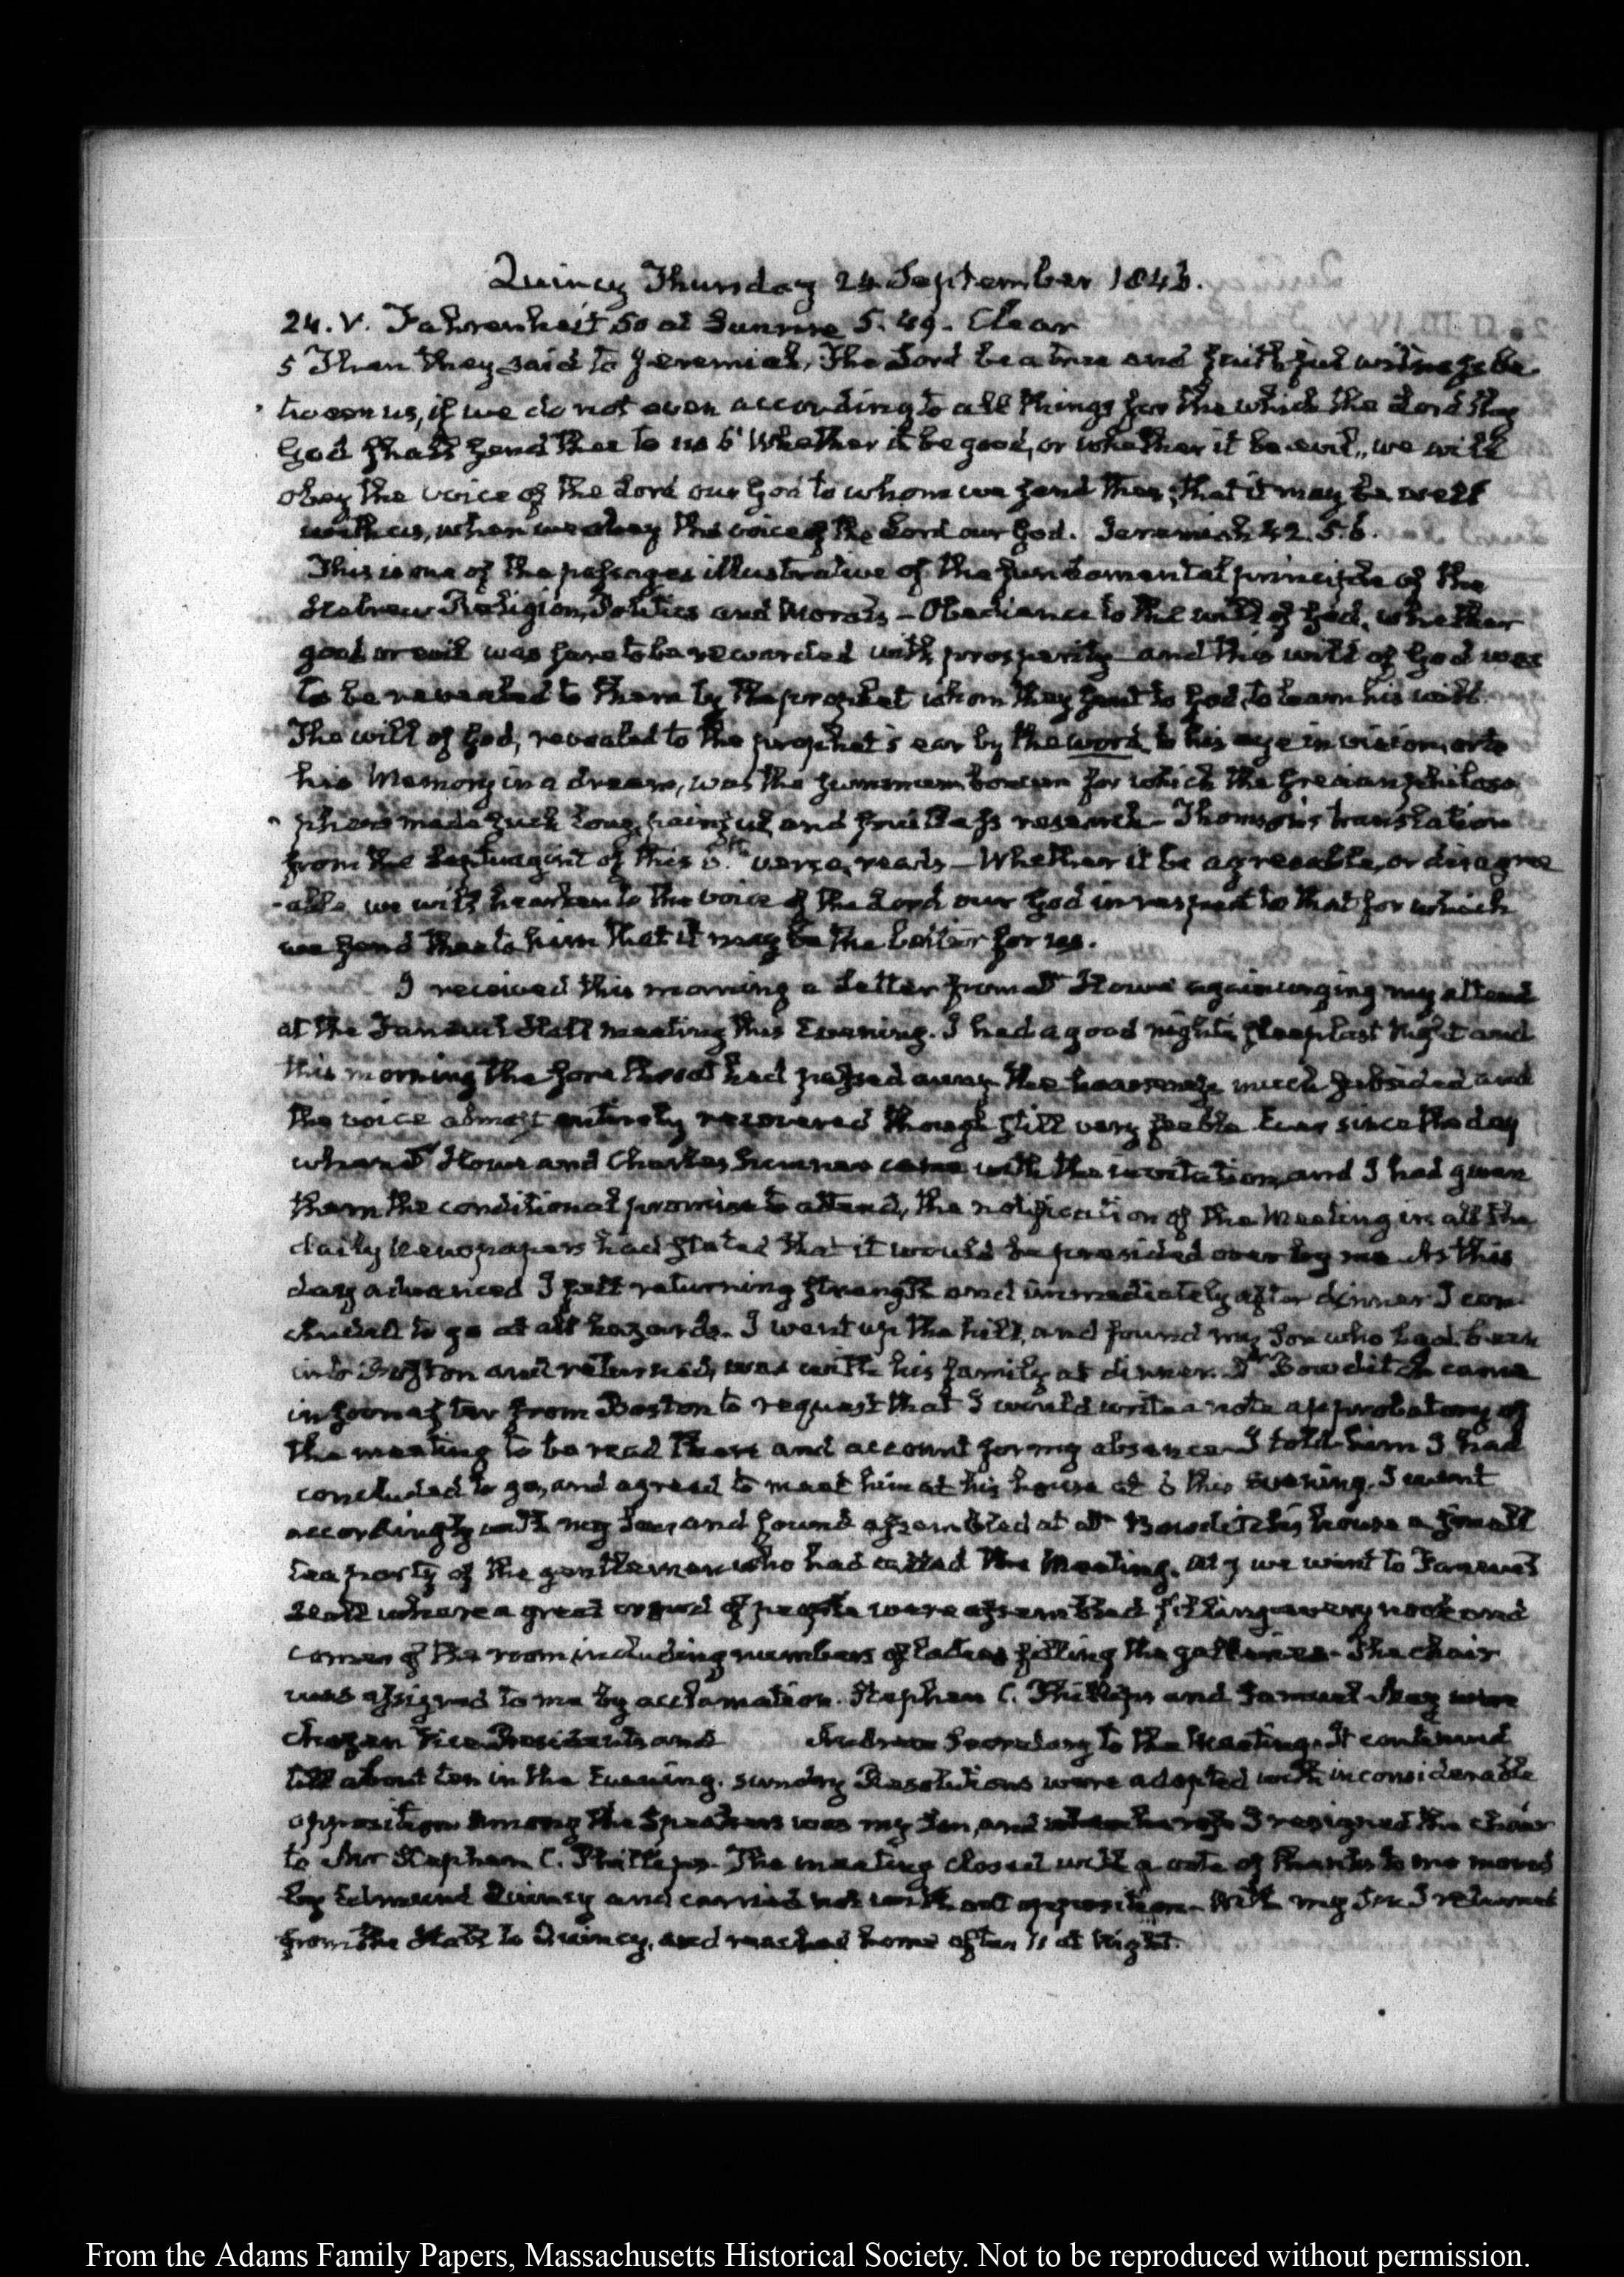 Quincy Thursday 24. September 1846.
24. V. Fahrenheit 50 at Sunrise 5.49. Clear
5 Then they said to Jeremiah, The Lord be a true and faithful witness be-
tween us, if we do not even according to all things for the which the Lord thy
God shall send thee to us 6 Whether it be good, or whether it be evil, we will
obey the voice of the Lord our God to whom we send thee; that it may be well
with us, when we obey the voice of the Lord our God. Jeremiah 42. 5.6.
This is one of the passages illustrative of the fundamental principle of the
Hebrew Religion, Politics and Morals — Obedience to the will of God, whether
good or evil was here to be rewarded with prosperity and this will of God was
to be revealed to them by the prophet whom they sent to God, to learn his will.
The will of God, revealed to the prophet's ear by the word, to his eye in vision, or to
his Memory in a dream, was the summum bonum for which the Grecian philoso-
phers made such long, painful, and fruitless research — Thomson's translation
from the Septuagint of this 6th verse, reads — Whether it be agreeable, or disagree-
-able we will hearken to the voice of the Lord our God in respect to that for which
we send thee to him that it may be the better for us.
I received this morning a Letter from Dr Howe again urging my attend
at the Faneuil Hall meeting this Evening. I had a good night's sleep last Night and
this morning the sore throat had passed away, the hoarseness much subsided and
the voice almost entirely recovered though still very feeble Ever since the day
when Dr Howe and Charles Sumner came with the invitation, and I had given
them the conditional promise to attend, the notification of the Meeting in all the
daily Newspapers had stated that it would be presided over by me. As this
day advanced I felt returning strength and immediately after dinner I con-
cluded to go at all hazards. I went up the hill, and found my Son who had been
into Boston and returned, was with his family at dinner. Dr Bowditch came
in soon after from Boston to request that I would write a note approbatory of
the meeting to be read there and account for my absence I told him I had
concluded to go, and agreed to meet him at his house at 6 this Evening. I went
accordingly with my Son, and found assembled at Dr Bowditch's house a small
tea party of the gentlemen who had called the Meeting. At 7 we went to Faneuil
Hall where a great crowd of people were assembled filling every nook and
corner of the room including numbers of ladies filling the galleries. The chair
was assigned to me by acclamation. Stephen C. Phillips and Samuel May were
chosen Vice Presidents and Andrew Secretary to the Meeting. It continued
till about ten in the Evening. sundry Resolutions were adopted with inconsiderable
opposition Among the Speakers was my Son, and I resigned the chair
to Mr Stephen C. Phillips. The meeting closed with a vote of thanks to me moved
by Edmund Quincy and carried not without opposition. With my Son I returned
from the Hall to Quincy, and reached home after 11 at Night.
From the Adams Family Papers, Massachusetts Historical Society. Not to be reproduced without permission.